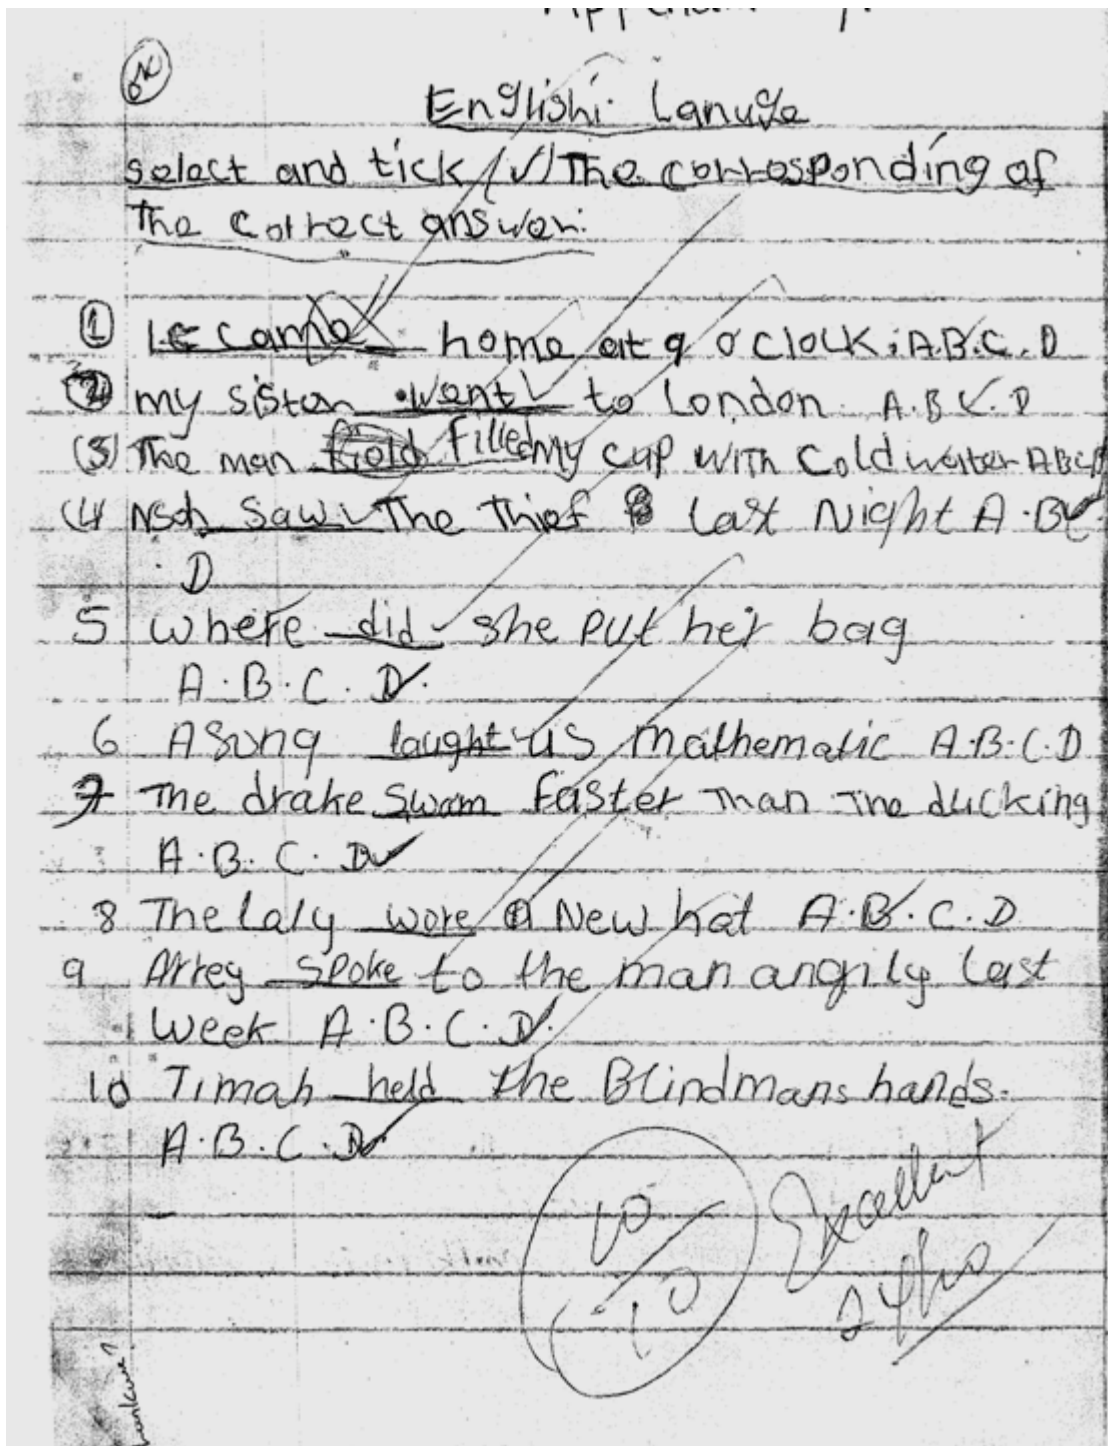 OK
Englishi Lanuge
select and tick (✓) The corresponding of
The correct answer:
① came home at 9 o clock; A.B.C.D
② my sister went to London. A.B.C.D
(3) The man field filled my cup with cold water A B C D
(4 Nsoh saw The thief last Night A.B.C.
D
5 where did she put her bag
A.B.C.D.
6 Asong taught us mathematic A.B.C.D
7 The drake swam Faster Than The ducking
A.B.C.D
8 The laly wore a New hat A.B.C.D
9 Arrey spoke to the man angrily last
Week A.B.C.D.
10 Timah held the Blindmans hands.
A.B.C.D.
10/10
Excellent